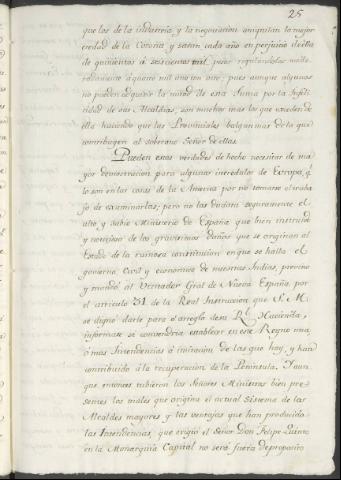 25
que los de la industria, y la negociacion aniquilan la mejor
ciudad de la Corona, y sacan cada año en perjuicio de ella
de quinientos á seiscientos mil pesos regulandolos mode
radamente á quatro mil uno con otro, pues aunque algunos
no pueden adquirir la mitad de esta suma por la infeli
cidad de sus Alcaldias, son muchos mas los que exceden de
ella haciendo que los Provinciales valgan mas de lo que
contribuyen al soberano Señor de ellas.
Pueden estas verdades de hecho necesitar de ma
yor demonstracion para algunos incredulos de Europa, q.e
lo son en las cosas de la America por no tomarse el traba
jo de examinarlas; pero no las dudará seguramente el
alto, y sabio Ministerio de España que bien instruido
y noticioso de los gravisimos daños que se originan al
Estado de la ruinosa constitucion en que se halla el
govierno Civil y economico de nuestras Indias, previno
y mandó al Visitador Gral de Nueva España por
el articulo 31 de la Real Instruccion que S. M.
se dignó darle para el arreglo de su Rl. Hacienda,
informase si convendria establecer en ese Reyno una
ó mas Intendencias á imitacion de las que hay, y han
contribuido á la recuperacion de la Peninsula. Y aun
que entonces tubieron los Señores Ministros bien pre-
sentes los males que origina el actual Sistema de las
Alcaldes mayores y las ventajas que han producido
las Intendencias, que erigió el Señor Don Felipe Quinto
en la Monarquia Capital no será fuera de proposito